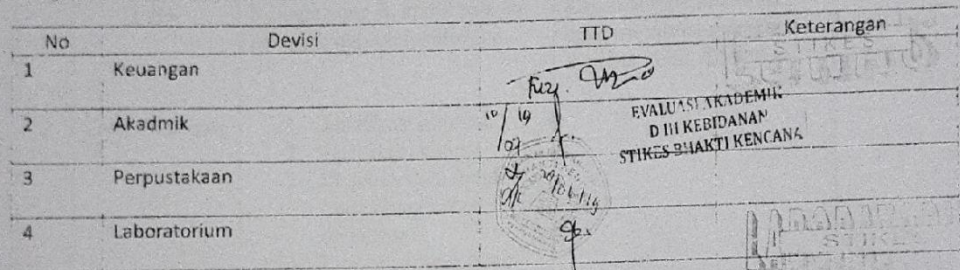 No Devisi TTD Keterangan
1 Keuangan
STIKES
2 Akadmik
EVALUASI AKADEMIK
D III KEBIDANAN
STIKES BHAKTI KENCANA
3 Perpustakaan
4 Laboratorium
STIKES